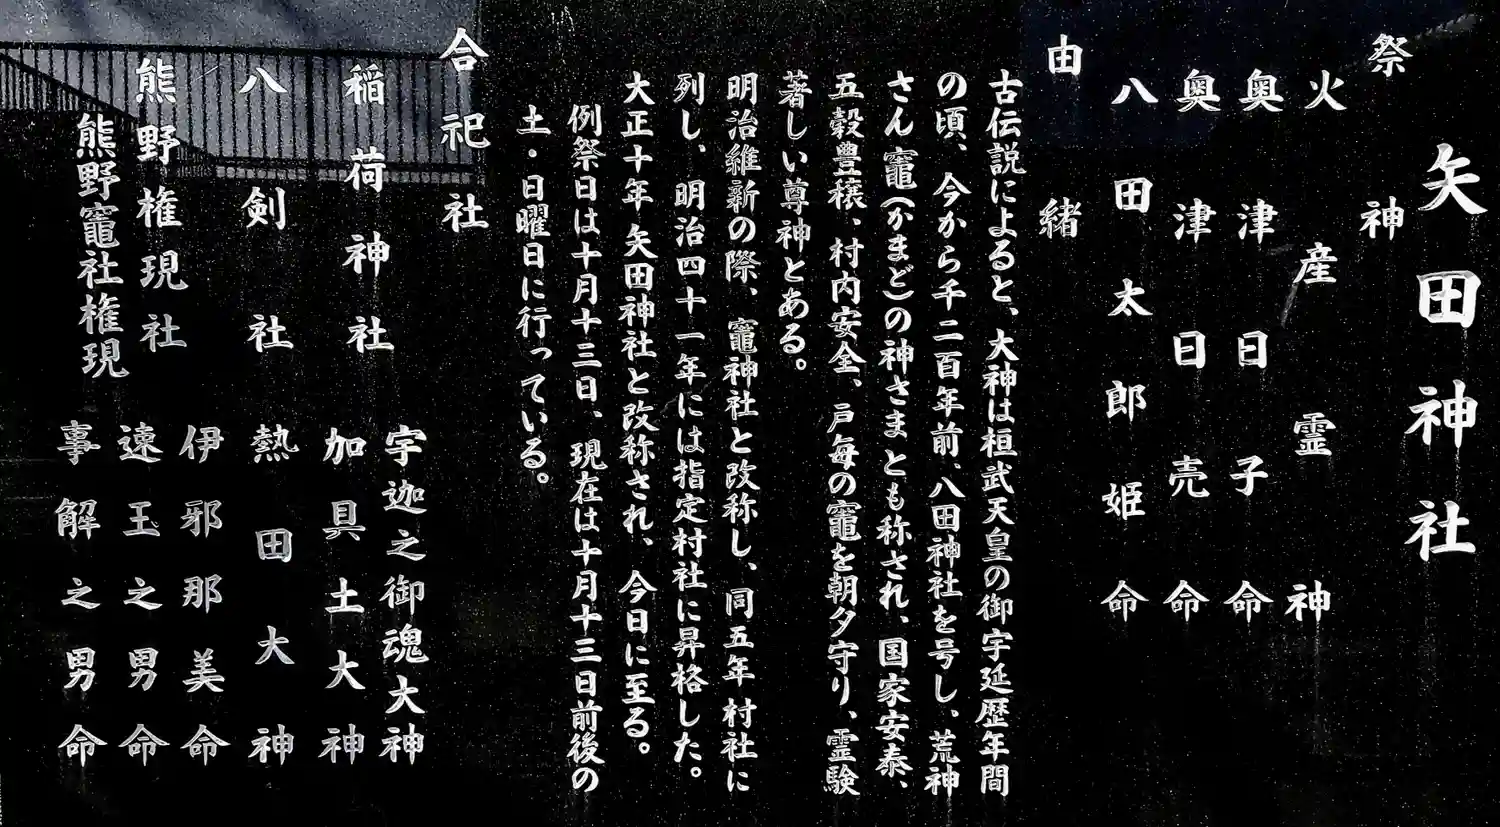 矢田神社
祭神
火産霊神
奥津日子命
奥津日売命
八田太郎姫命
由緒
古伝説によると、大神は桓武天皇の御宇延歴年間
の頃、今から千二百年前、八田神社を号し、荒神
さん竈(かまど)の神さまとも称され、国家安泰、
五穀豊穣、村内安全、戸毎の竈を朝夕守り、霊験
著しい尊神とある。
明治維新の際、竈神社と改称し、同五年村社に
列し、明治四十一年には指定村社に昇格した。
大正十年矢田神社と改称され、今日に至る。
例祭日は十月十三日、現在は十月十三日前後の
土・日曜日に行っている。
合祀社
稲荷神社 宇迦之御魂大神
加具土大神
八剣社 熱田大神
熊野権現社 伊邪那美命
熊野竈社権現 速玉之男命
事解之男命